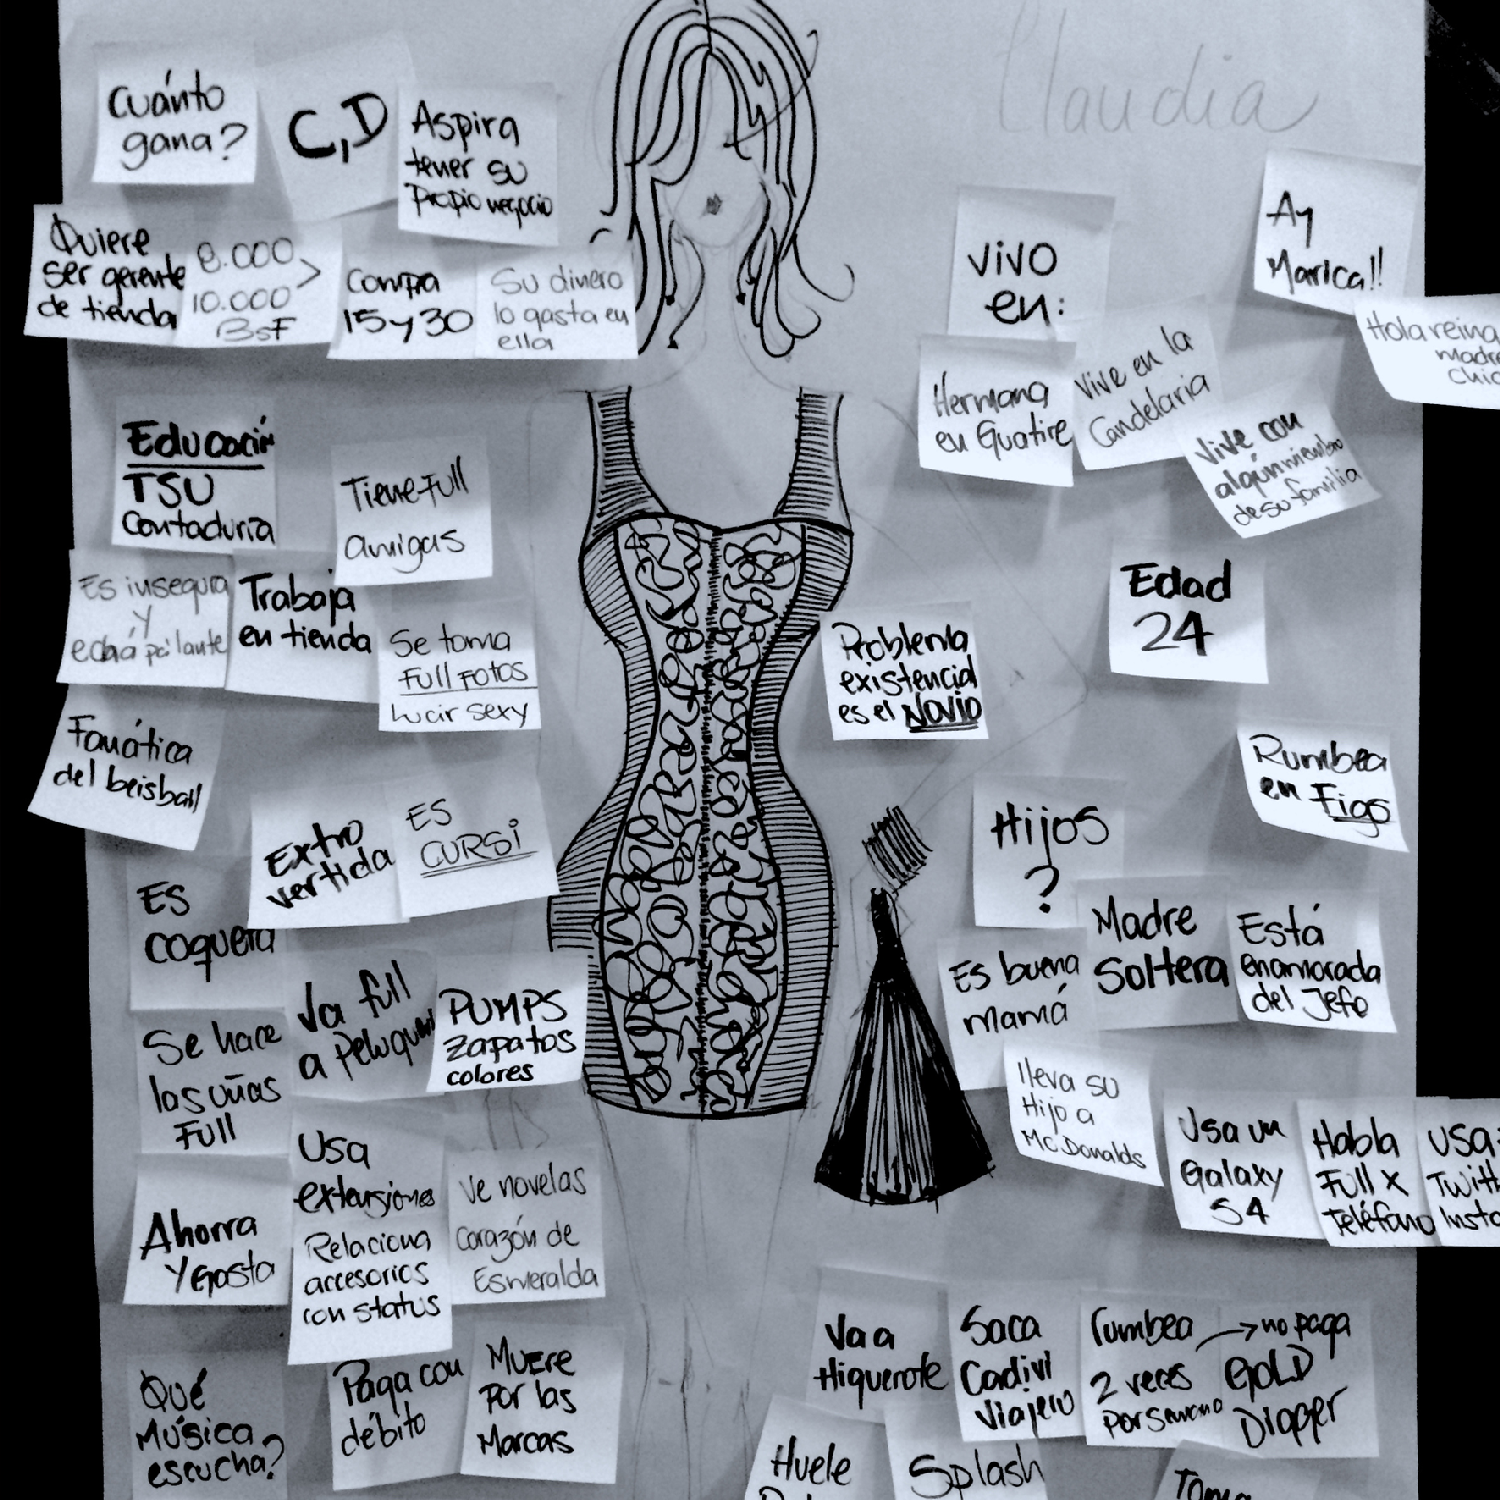 Claudia
Cuánto
gana?
C,D
Aspira
tener su
Propio negocio
Quiere
ser gerente
de tienda
8.000 >
10.000
BsF
Compra
15 y 30
Su dinero
lo gasta en
ella
Educación
TSU
Contaduria
Tiene Full
amigas
Es insegura
y
echá pa'lante
Trabaja
en tienda
Se toma
Full FOTOS
lucir sexy
Fanática
del beisball
Extro
vertida
ES
CURSi
ES
coqueta
Va full
a Peluqueri
PUMPS
Zapatos
colores
Se hace
las uñas
Full
Usa
extensiones
Relaciona
accesorios
con status
Ve novelas
Corazón de
Esmeralda
Ahorra
Y Gasta
Qué
Música
escucha?
Paga con
débito
Muere
Por las
Marcas
Vivo
en:
Ay
Marica!!
Hola reina
madre
Hermana
en Guatire
Vive en la
Candelaria
Vive con
algún miembro
de su familia
Edad
24
Problema
existencial
es el Novio
Rumbea
en Figo
Hijos
?
Es buena
mamá
Madre
Soltera
Está
enamorada
del Jefe
lleva su
Hijo a
McDonalds
Usa un
Galaxy
S4
Habla
Full x
Teléfono
Usa
Twitt
Insta
Va a
Higuerote
Saca
Cadivi
Viajero
rumbea
2 veces
por semana
→ no paga
GOLD
Digger
Huele
Splash
Toma